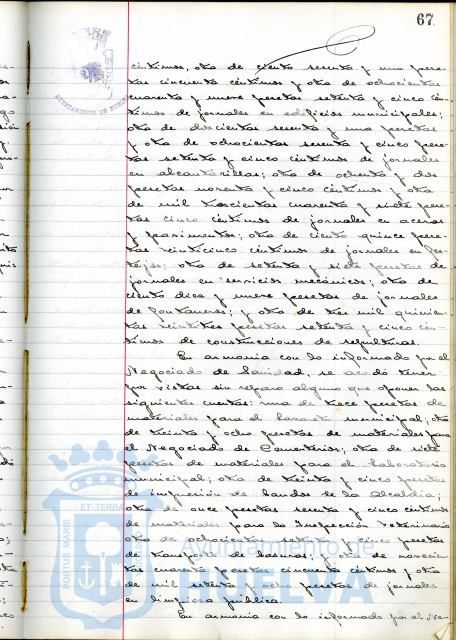 67.
AYUNTAMIENTO DE HUELVA
céntimos, otra de ciento sesenta y una pese-
tas cincuenta céntimos y otra de ochocientas
cuarenta y nueve pesetas setenta y cinco cén-
timos de jornales en edificios municipales;
otra de doscientas sesenta y una pesetas
y otra de ochocientas sesenta y cinco pese-
tas setenta y cinco céntimos de jornales
en alcantarillas; otra de ochenta y dos
pesetas noventa y cinco céntimos y otra
de mil trescientas cuarenta y siete pese-
tas cinco céntimos de jornales en aceras
y pavimentos; otra de ciento quince pese-
tas veinticinco céntimos de jornales en fes-
tejos; otra de setenta y siete pesetas de
jornales en servicios mecánicos; otra de
ciento diez y nueve pesetas de jornales
de fontaneros; y otra de tres mil quinien-
tas veintitres pesetas setenta y cinco cén-
timos de construcciones de sepulturas.
En armonia con lo informado por el
Negociado de Sanidad, se acordó tener
por vistas sin reparo alguno que oponer las
siguientes cuentas: una de trece pesetas de
materiales para el municipal; otra
de treinta y ocho pesetas de materiales para
el Negociado de Cementerios; otra de siete
pesetas de materiales para el Laboratorio
municipal; otra de treinta y cinco pesetas
de impresión de bandos de la Alcaldia;
otra de once pesetas sesenta y cinco céntimos
de materiales para la Inspección Veterinaria
otra de ochocientas setenta y cinco pesetas
de transporte de basuras; y otra de novecien-
tas cuarenta pesetas cincuenta céntimos y otra
de mil setenta y ocho pesetas de jornales
en limpieza pública.
En armonia con lo informado por el Ne-
PORTUS MARIS ET TERRAE
Ayuntamiento de
HUELVA